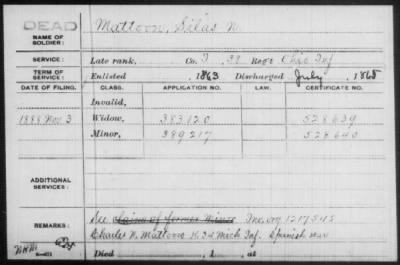 DEAD
NAME OF SOLDIER: Mattoon, Silas N.
SERVICE: Late rank, Co. I, 39 Reg't Ohio Inf
TERM OF SERVICE: Enlisted 1863 Discharged July, 1865
DATE OF FILING. CLASS. APPLICATION NO. LAW. CERTIFICATE NO.
Invalid,
1888 Nov 3 Widow, 383120 528639
Minor, 389217 528640
ADDITIONAL SERVICES:
REMARKS: See claim of former Minor Inv. org 1217545
Charles N. Mattoon K. 34 Mich Inf. Spanish war
Died , 1 , at